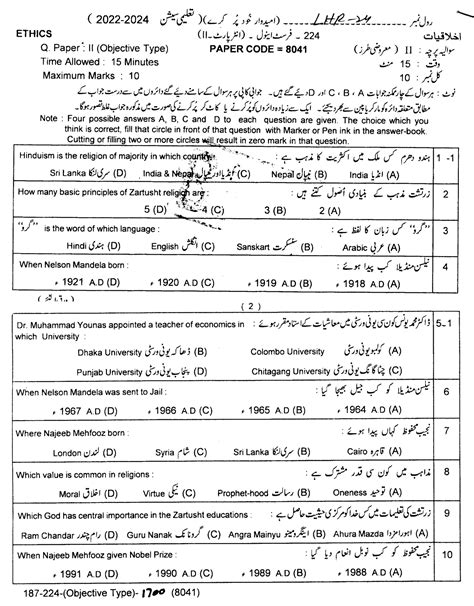 (2022-2024 تعلیمی سیشن) (امیدوار خود پُر کرے) LHR-24 رول نمبر
ETHICS 224 - فرسٹ اینول - (انٹر پارٹ - II) اخلاقیات
Q. Paper : II (Objective Type) PAPER CODE = 8041 سوالیہ پرچہ : II (معروضی طرز)
Time Allowed : 15 Minutes وقت : 15 منٹ
Maximum Marks : 10 کل نمبر : 10
نوٹ : ہر سوال کے چار ممکنہ جوابات A ، B ، C اور D دیئے گئے ہیں۔ جوابی کاپی پر ہر سوال کے سامنے دیئے گئے دائروں میں سے درست جواب کے
مطابق متعلقہ دائرہ کو مارکر یا پین سے بھر دیجئے۔ ایک سے زیادہ دائروں کو پُر کرنے یا کاٹ کر پُر کرنے کی صورت میں مذکورہ جواب غلط تصور ہوگا۔
Note : Four possible answers A, B, C and D to each question are given. The choice which you
think is correct, fill that circle in front of that question with Marker or Pen ink in the answer-book.
Cutting or filling two or more circles will result in zero mark in that question.
Hinduism is the religion of majority in which country : ہندو دھرم کس ملک میں اکثریت کا مذہب ہے : 1-1
Sri Lanka سری لنکا (D) India & Nepal انڈیا اور نیپال (C) Nepal نیپال (B) India انڈیا (A)
How many basic principles of Zartusht religion are : زرتشت مذہب کے بنیادی اُصول کتنے ہیں : 2
5 (D) 4 (C) 3 (B) 2 (A)
"گرو" is the word of which language : "گرو" کس زبان کا لفظ ہے : 3
Hindi ہندی (D) English انگلش (C) Sanskart سنسکرت (B) Arabic عربی (A)
When Nelson Mandela born : نیلسن منڈیلا کب پیدا ہوئے : 4
ء 1921 A.D (D) ء 1920 A.D (C) ء 1919 A.D (B) ء 1918 A.D (A)
( 2 )
Dr. Muhammad Younas appointed a teacher of economics in ڈاکٹر محمد یونس کون سی یونیورسٹی میں معاشیات کے استاد مقرر ہوئے : 5-1
which University :
Dhaka University ڈھاکہ یونیورسٹی (B) Colombo University کولمبو یونیورسٹی (A)
Punjab University پنجاب یونیورسٹی (D) Chitagang University چٹاگانگ یونیورسٹی (C)
When Nelson Mandela was sent to Jail : نیلسن منڈیلا کو کب جیل بھیجا گیا : 6
ء 1967 A.D (D) ء 1966 A.D (C) ء 1965 A.D (B) ء 1964 A.D (A)
Where Najeeb Mehfooz born : نجیب محفوظ کہاں پیدا ہوئے : 7
London لندن (D) Syria شام (C) Sri Lanka سری لنکا (B) Cairo قاہرہ (A)
Which value is common in religions : مذاہب میں کون سی قدر مشترک ہے : 8
Moral اخلاق (D) Virtue نیکی (C) Prophet-hood رسالت (B) Oneness توحید (A)
Which God has central importance in the Zartusht educations : زرتشت کی تعلیمات میں کس خدا کو مرکزی حیثیت حاصل ہے : 9
Ram Chandar رام چندر (D) Guru Nanak گرو نانک (C) Angra Mainyu اینگرہ مینیو (B) Ahura Mazda اہورامزدا (A)
When Najeeb Mehfooz given Nobel Prize : نجیب محفوظ کو کب نوبل انعام دیا گیا : 10
ء 1991 A.D (D) ء 1990 A.D (C) ء 1989 A.D (B) ء 1988 A.D (A)
187-224-(Objective Type)- 1700 (8041)